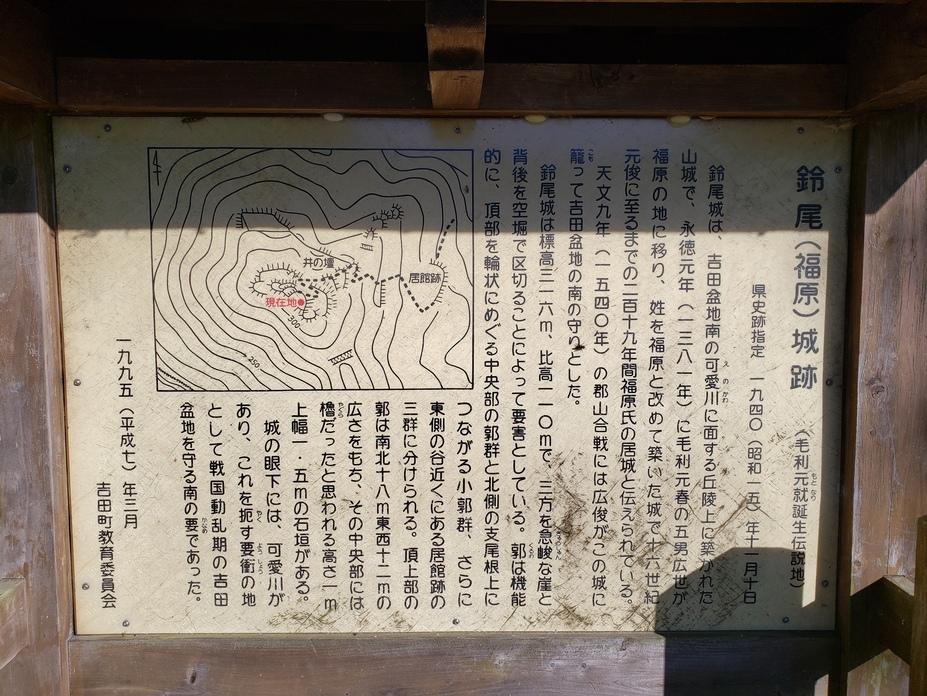 鈴尾（福原）城跡（毛利元就誕生伝説地）
もとなり
県史跡指定　一九四〇（昭和一五）年十一月十日
鈴尾城は、吉田盆地南の可愛川に面する丘陵上に築かれた
えのかわ
山城で、永徳元年（一三八一年）に毛利元春の五男広世が
福原の地に移り、姓を福原と改めて築いた城で十六世紀
元俊に至るまでの二百十九年間福原氏の居城と伝えられている。
天文九年（一五四〇年）の郡山合戦には広俊がこの城に
こも
籠って吉田盆地の南の守りとした。
鈴尾城は標高三一六m、比高一一〇mで、三方を急峻な崖と
背後を空堀で区切ることによって要害としている。郭は機能
くるわ
的に、頂部を輪状にめぐる中央部の郭群と北側の支尾根上に
つながる小郭群、さらに
東側の谷近くにある居館跡の
三群に分けられる。頂上部の
郭は南北十八m東西十二mの
広さをもち、その中央部には
やぐら
櫓だったと思われる高さ一m
上幅一・五mの石垣がある。
城の眼下には、可愛川が
あり、これを扼す要衝の地
やく
ようしょう
として戦国動乱期の吉田
盆地を守る南の要であった。
かなめ
一九九五（平成七）年三月
吉田町教育委員会
井の壇
居館跡
現在地
300
250